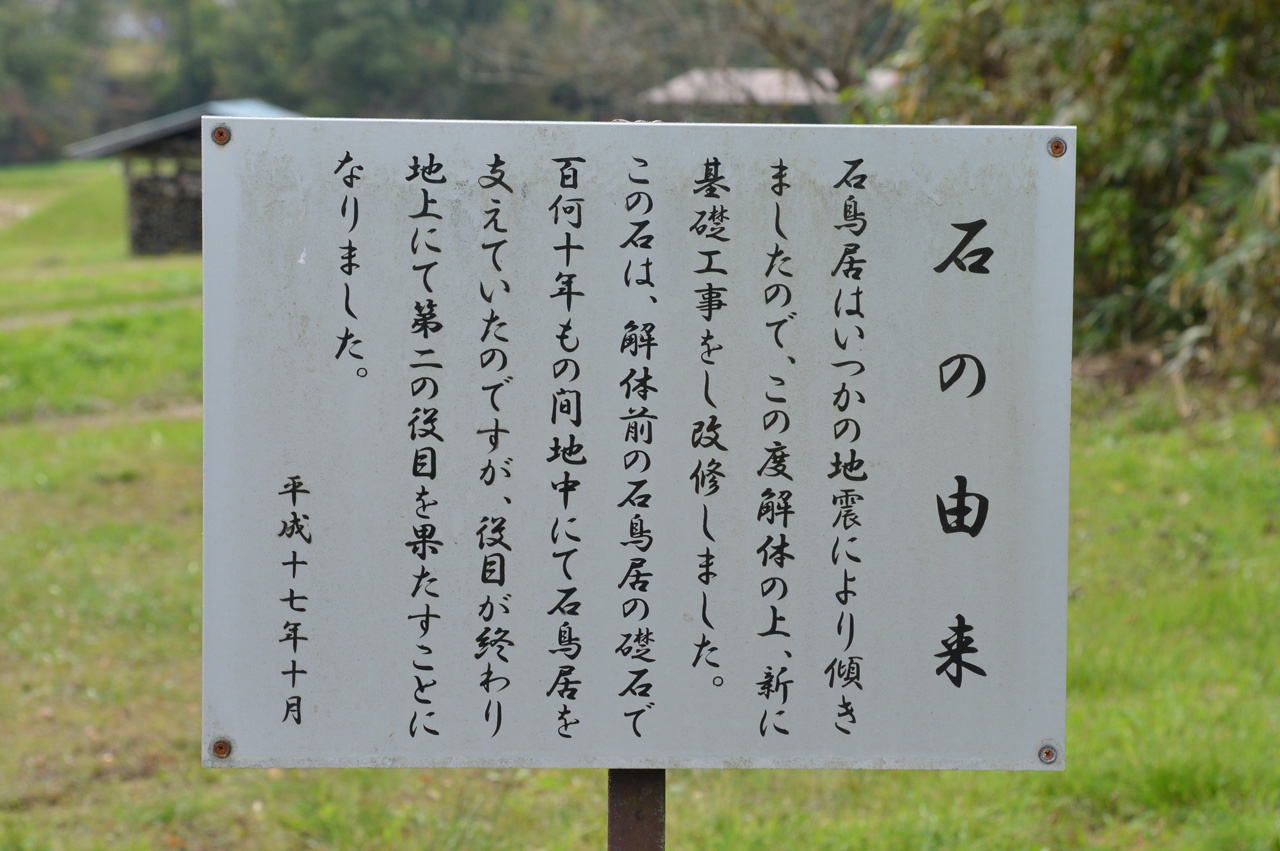 石の由来
石鳥居はいつかの地震により傾き
ましたので、この度解体の上、新に
基礎工事をし改修しました。
この石は、解体前の石鳥居の礎石で
百何十年もの間地中にて石鳥居を
支えていたのですが、役目が終わり
地上にて第二の役目を果たすことに
なりました。
平成十七年十月